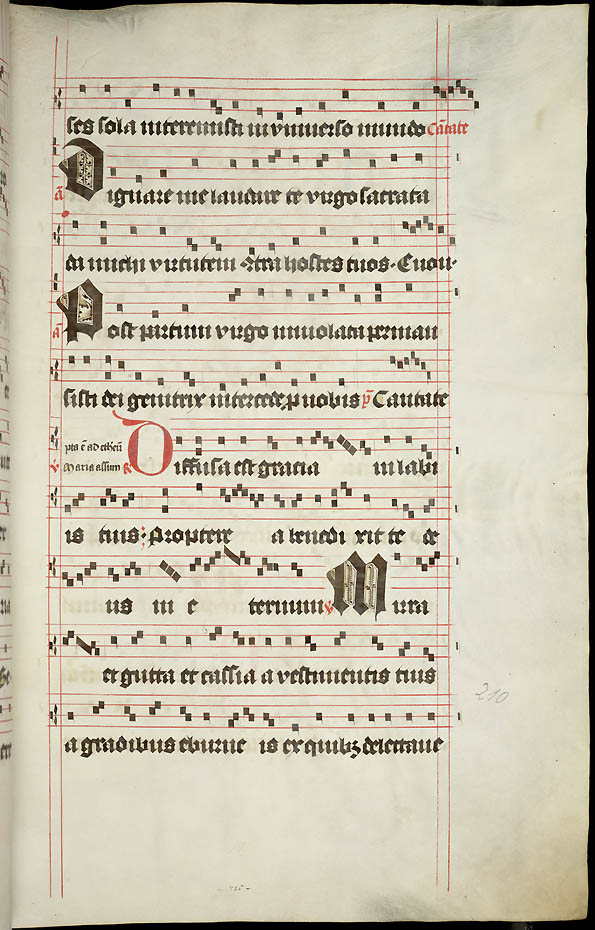 ses sola interemisti in vniuerso mundo Cātate
ā Dignare me laudare te virgo sacrata
da michi virtutem ꝯtra hostes tuos. Euou.
ā Post partum virgo inuiolata perman
sisti dei genitrix intercede p nobis p̄ Cantate
pta ē ad etheū
v Maria assum R Diffusa est gracia in labi
is tuis: Propterea benedixit te de
us in eternum v Mirra
et gutta et cassia a vestimentis tuis
a gradibus eburneis ex quibꝫ delectaue
210